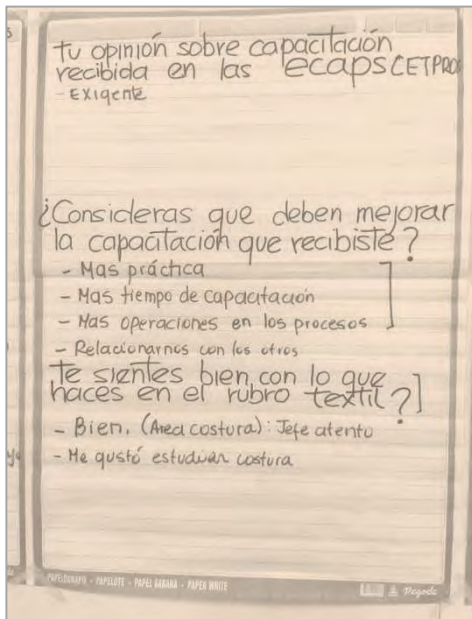 tu opinión sobre capacitación
recibida en las ecaps CETPROS
- Exigente
¿Consideras que deben mejorar
la capacitación que recibiste?
- Mas práctica
- Mas tiempo de capacitación
- Mas operaciones en los procesos
- Relacionarnos con los otros
te sientes bien con lo que
haces en el rubro textil?
- Bien. (Area costura): Jefe atento
- Me gustó estudiar costura
PAPELOGRAFO - PAPELOTE - PAPEL SABANA - PAPER WHITE
Pagoda